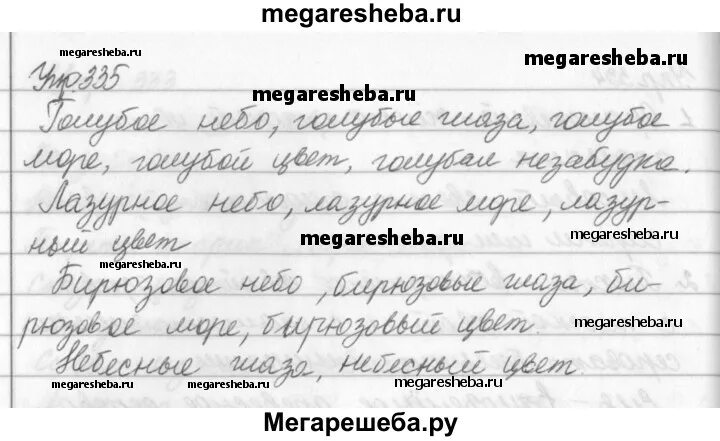 megaresheba.ru
megaresheba.ru
Упр.335
megaresheba.ru
megaresheba.ru
Голубое небо, голубые глаза, голубое
море, голубой цвет, голубая незабудка.
Лазурное небо, лазурное море, лазур-
ный цвет
megaresheba.ru
megaresheba.ru
megaresheba.ru
Бирюзовое небо, бирюзовые глаза, би-
рюзовое море, бирюзовый цвет.
megaresheba.ru
Небесные глаза, небесный цвет.
megaresheba.ru
megaresheba.ru
megaresheba.ru
megaresheba.ru
Мегарешеба.ру